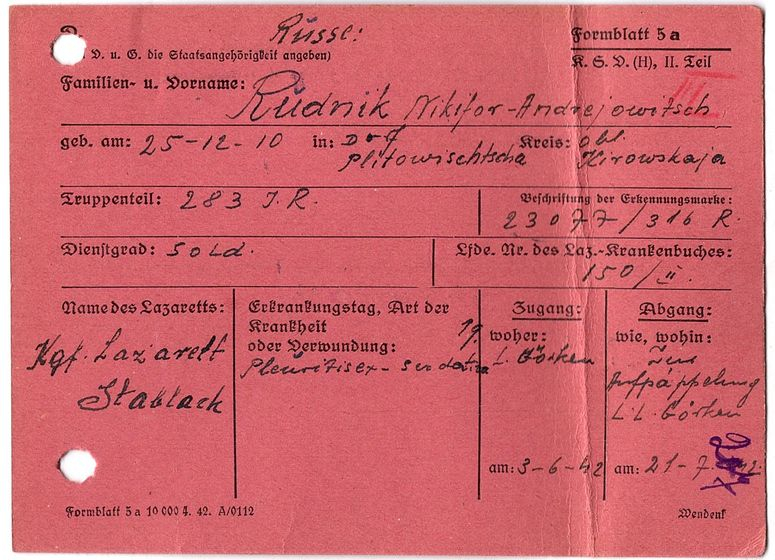 Russe:
D. u. G. die Staatsangehörigkeit angeben)
Formblatt 5a
K. S. D. (H), II. Teil
III
Familien- u. Vorname: Rudnik Nikifor-Andrejowitsch
geb. am: 25-12-10 in: Drf Plitowischtscha Kreis: obl. Kirowskaja
Truppenteil: 283 J.R.
Beschriftung der Erkennungsmarke:
23077/316 R.
Dienstgrad: Sold.
Lfde. Nr. des Laz.-Krankenbuches:
150/II.
Name des Lazaretts:
Kgf. Lazarett
Stablack
Erkrankungstag, Art der
Krankheit
oder Verwundung: 19.
Pleuritis
Zugang:
woher:
L. Görken
am: 3-6-42
Abgang:
wie, wohin:
Zur
Aufpäppelung
L.L. Görken
am: 21-7. 42.
Formblatt 5a 10 000 4. 42. A/0112
Wenden!